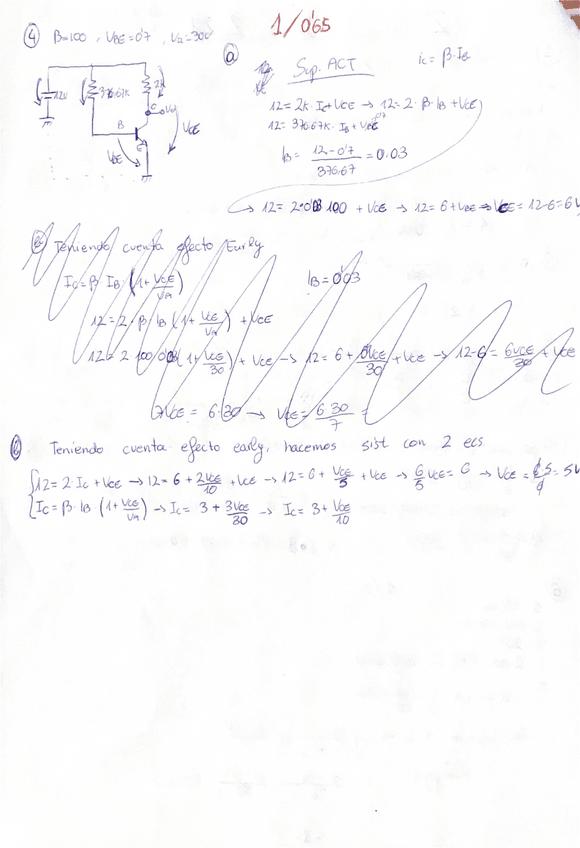 1/0'65
④ B=100, VBE=0'7, VA=30V
ⓐ Sup. ACT ic = β·IB
12V 376.67K 2K C Vo
B E VBE VCE
12=2K·Ic+VCE → 12=2·β·IB+VCE
12=376.67K·IB+VBE 0'7
IB = 12-0'7 / 376.67 = 0.03
→ 12= 2·0'03·100 + VCE → 12=6+VCE → VCE=12-6=6V
Teniendo cuenta efecto Early
Ic=β·IB·(1+VCE/VA) IB=0'03
12=2·β·IB(1+VCE/VA) + VCE
12=2·100·0'03(1+VCE/30) + VCE → 12=6+6VCE/30+VCE → 12-6=6VCE/30 + VCE
7VCE = 6·30 → VCE=6·30/7 =
ⓑ Teniendo cuenta efecto early, hacemos sist con 2 ecs
12=2·Ic+VCE → 12=6+2VCE/10 +VCE → 12=6+VCE/5 + VCE → 6/5 VCE=6 → VCE = = 5V
Ic=β·IB·(1+VCE/VA) → Ic= 3+3VCE/30 → Ic=3+VCE/10